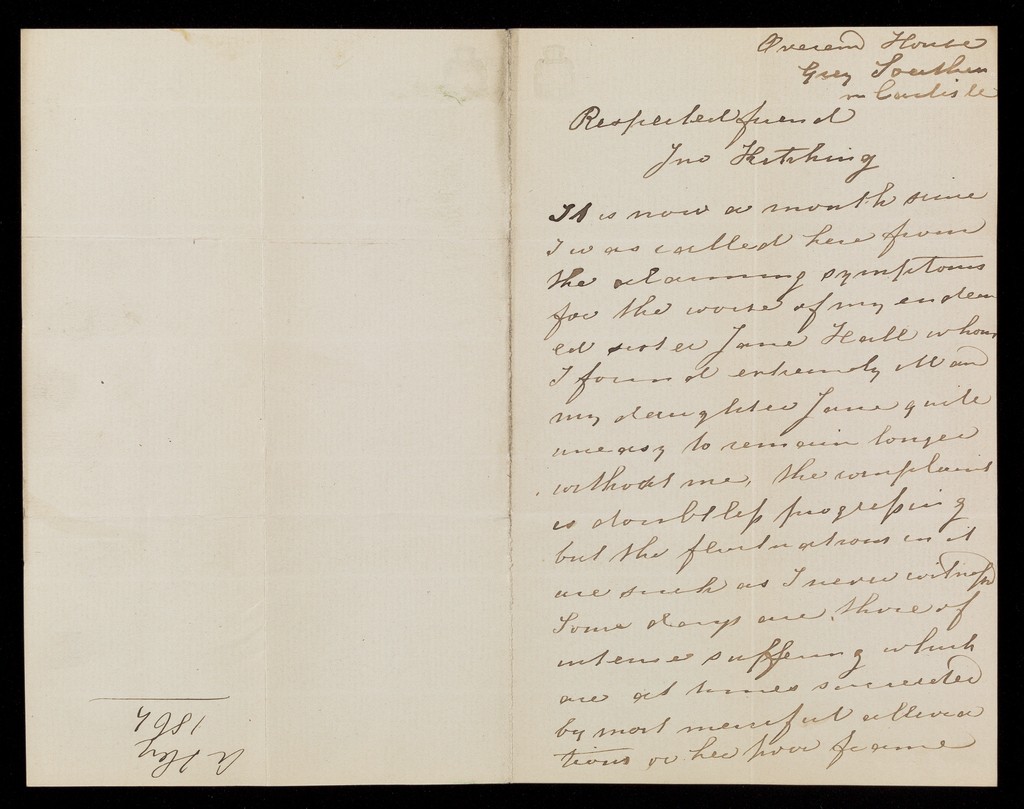 House
Grey Southen
nr Carlisle
Respected friend
Jno Hitching
It is now a month since
I was called here from
the alarming symptoms
for the worse of my endear
ed sister Jane Hall whom
I found extremely ill and
my daughter Jane quite
uneasy to remain longer
without me, the complaint
is doubtless progressing
but the fluctuations in it
are such as I never witnessd
Some days are those of
intense suffering which
are at times succeeded
by most merciful allevia
tions or her poor frame
1867